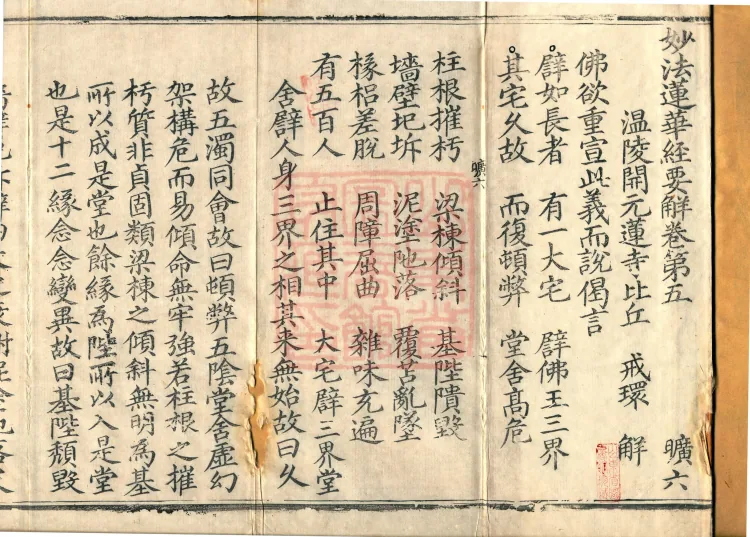 妙法蓮華經要解卷第五 曠六
温陵開元蓮寺比丘 戒環 解
佛欲重宣此義而說偈言
譬如長者 有一大宅 譬佛王三界
其宅久故 而復頓弊 堂舍髙危
曠六
柱根摧朽 梁棟傾斜 基陛隤毀
墻壁圮坼 泥塗阤落 覆苫亂墜
椽梠差脫 周障屈曲 雜味充遍
有五百人 止住其中 大宅譬三界堂
舍譬人身三界之相其来無始故曰久
故五濁同會故曰頓弊五陰堂舍虛幻
架構危而易傾命無牢強若柱根之摧
朽質非貞固類梁棟之傾斜無明為基
所以成是堂也餘緣為陛所以入是堂
也是十二緣念念變異故曰基陛頹毀